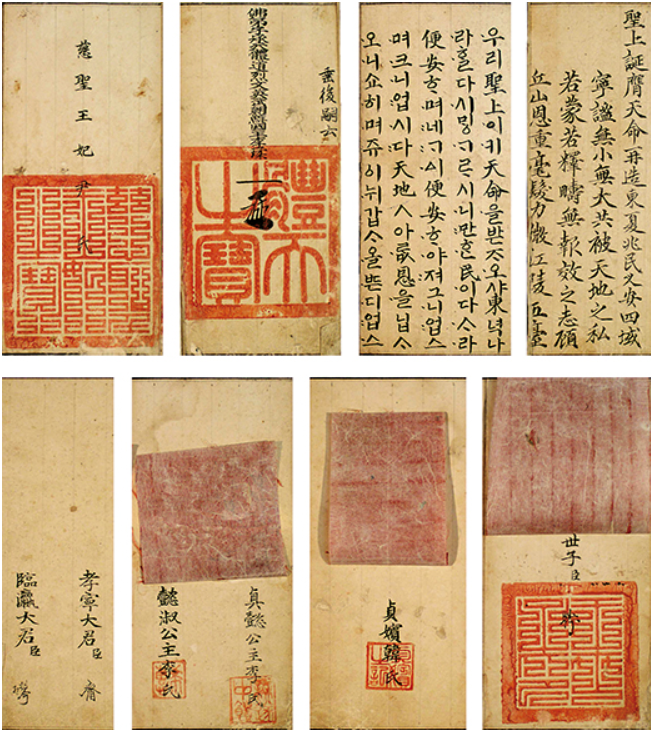 聖上誕膺天命再造東夏兆民乂安四域
寧謐無小無大共被天地之私
若蒙若釋疇無報效之志顧
丘山恩重毫髮力微江陵五臺
우리聖上이키天命을받ᄌᆞ오샤東녁나
라ᄒᆞᆯ다시ᄆᆡᇰᄀᆞᄅᆞ시니만ᄒᆞᆫ民이다사라
便安ᄒᆞ며네ᄀᆞᅀᅵ便安ᄒᆞ야져그니업스
며크니업시다天地ㅅ아ᄅᆞᆷ恩을닙ᄉᆞ
오니쇼히며쥬ᅀᅵ뉘갑ᄉᆞ올ᄠᅳ디업스
垂後嗣云
佛弟子承天體道烈文英武朝鮮國王李瑈
體天之寶
慈聖王妃尹氏
世子臣
貞嬪韓氏
貞懿公主李氏
懿淑公主李氏
孝寧大君臣
臨瀛大君臣璆